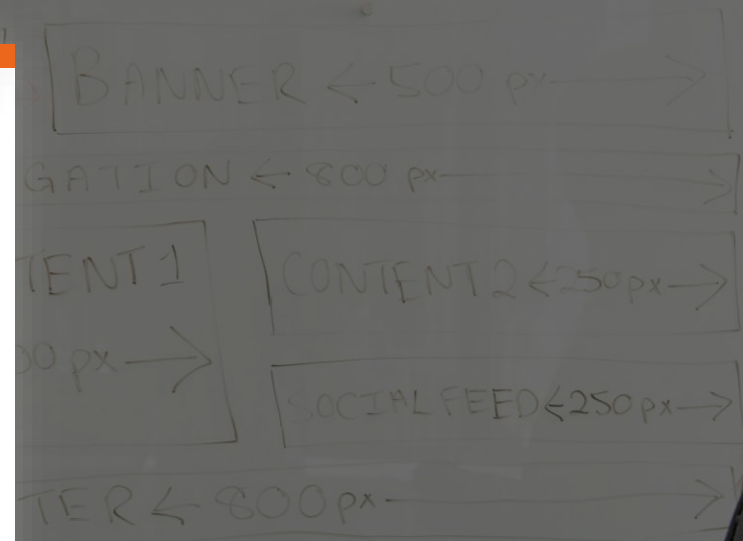 BANNER ← 500 px →
GATION ← 800 px →
TENT 1
CONTENT 2 ← 250px →
00 px →
SOCIAL FEED ← 250px →
TER ← 800px →